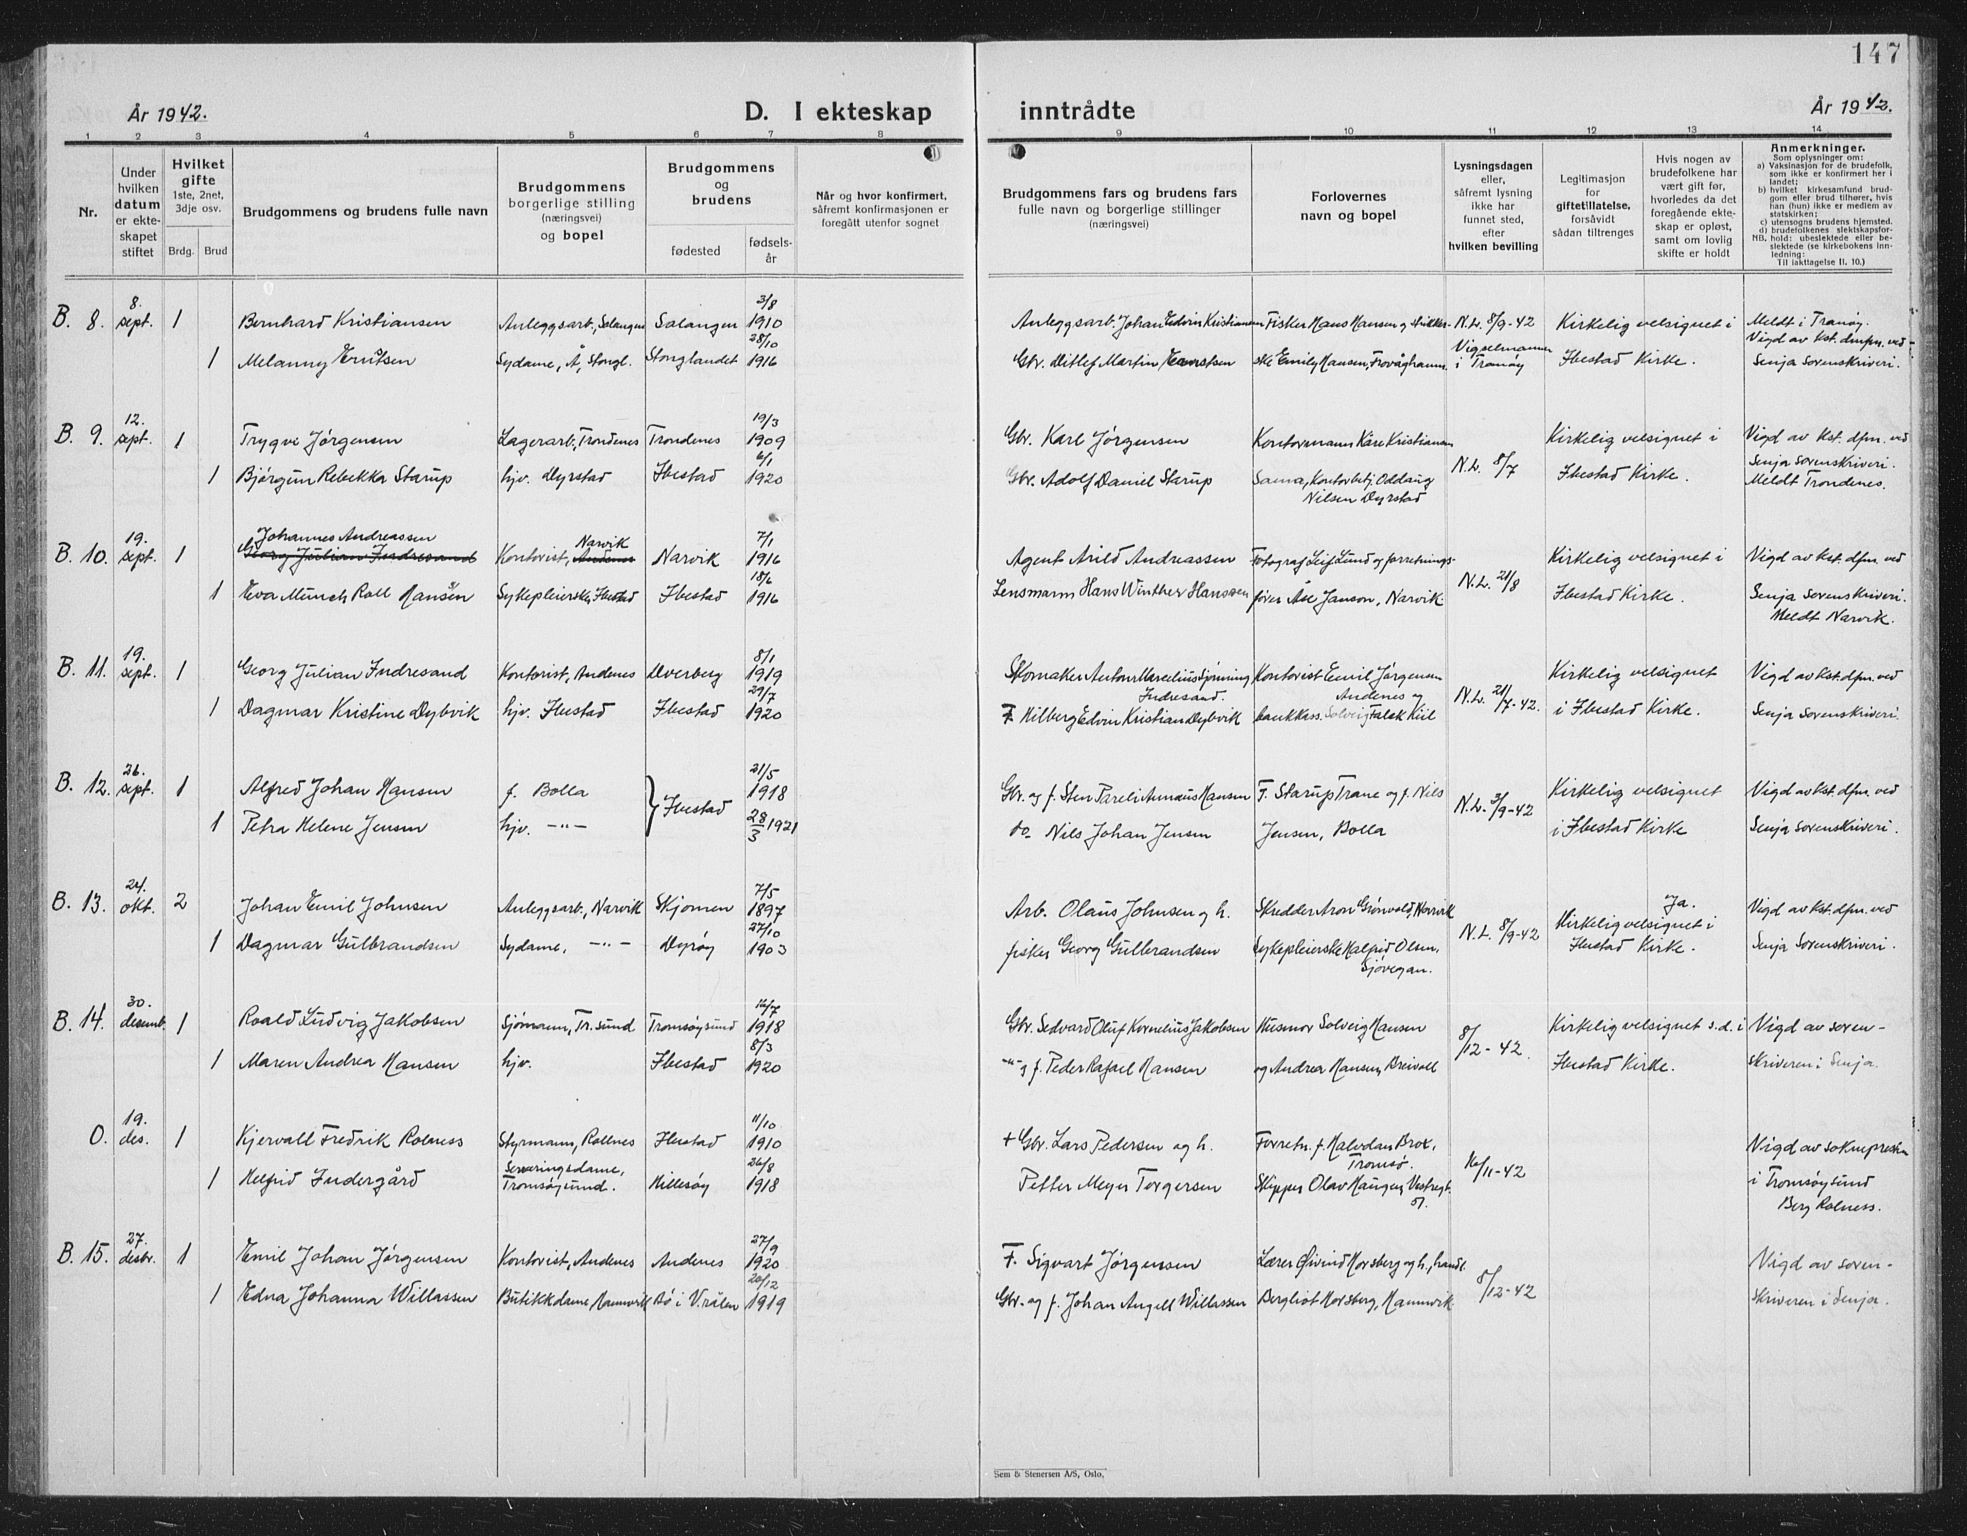 147
År 1942.
D. I ekteskap inntrådte
År 1942.
1 2 3 4 5 6 7 8 9 10 11 12 13 14
Nr.
Under hvilken datum er ekteskapet stiftet
Hvilket gifte 1ste, 2net, 3dje osv.
Brdg. Brud
Brudgommens og brudens fulle navn
Brudgommens borgerlige stilling (næringsvei) og bopel
Brudgommens og brudens
fødested
fødselsår
Når og hvor konfirmert, såfremt konfirmasjonen er foregått utenfor sognet
Brudgommens fars og brudens fars fulle navn og borgerlige stillinger (næringsvei)
Forlovernes navn og bopel
Lysningsdagen eller, såfremt lysning ikke har funnet sted, efter hvilken bevilling
Legitimasjon for giftetillatelse, forsåvidt sådan tiltrenges
Hvis nogen av brudefolkene har vært gift før, hvorledes da det foregående ekteskap er opløst, samt om lovlig skifte er holdt
Anmerkninger.
Som oplysninger om:
a) Vaksinasjon for de brudefolk, som ikke er konfirmert her i landet;
b) hvilket kirkesamfund brudgom eller brud tilhører, hvis han (hun) ikke er medlem av statskirken;
c) utensogns brudens hjemsted.
d) brudefolkenes slektskapsforhold: ubeslektede eller beslektede (se kirkebokens innledning:
NB. Til iakttagelse II. 10.)
B. 8. 8. sept. 1 Bernhard Kristiansen Anleggsarb., Salangen Salangen 3/8 1910 Anleggsarb. Johan Edvin Kristiansen Fisker Hans Hansen og N.L. 8/9-42 Kirkelig velsignet i Meldt i Tranøy.
1 Melanny Sydame, Å, Stongl. Stonglandet 28/10 1916 Gbr. Ditlef Martin Emily Hansen, Vigselmannen i Tranøy Ibestad Kirke. Vigd av kst. dmfm. ved Senja Sorenskriveri.
B. 9. 12. sept. 1 Trygve Jørgensen Lagerarb., Trondenes Trondenes 19/3 1909 Gbr. Karl Jørgensen Kontormann Kåre Kristiansen N.L. 8/7 Kirkelig velsignet i Vigd av kst. dfm. ved
1 Bjørgun Rebekka Starup hjv. Dyrstad Ibestad 6/1 1920 Gbr. Adolf Daniel Starup Sama, Kontorbetj. Oddaug Nilsen Dyrstad Ibestad Kirke. Senja Sorenskriveri. Meldt Trondenes.
B. 10. 19. sept. 1 Johannes Andreassen Georg Julian Indresand Kontorist, Narvik Andenes Narvik 7/1 1916 Agent Arild Andreassen Fotograf Leif Lund og forretnings- N.L. 21/8 Kirkelig velsignet i Vigd av kst. dfm. ved
1 Eva Münch Roll Hansen Sykepleierske, Ibestad Ibestad 18/6 1916 Lensmann Hans Winther Hanssen fører Åse Janson, Narvik Ibestad Kirke. Senja Sorenskriveri. Meldt Narvik.
B. 11. 19. sept. 1 Georg Julian Indresand Kontorist, Andenes Dverberg 8/1 1919 Skomaker Anton Marcelius Indresand. Kontorist Emil Jørgensen Andenes og N.L. 21/7-42. Kirkelig velsignet Vigd av kst. dfm. ved
1 Dagmar Kristine Dybvik hjv. Ibestad Ibestad 29/7 1920 F. Hilberg Edvin Kristian Dybvik bankkass. Solveig Falck Kiil i Ibestad Kirke. Senja Sorenskriveri.
B. 12. 26. sept. 1 Alfred Johan Hansen f. Bolla Ibestad 21/5 1918 Gbr. og f. Sten Pareli Hansen F. Starup Trane og f. Nils N.L. 3/9-42 Kirkelig velsignet Vigd av kst. dfm. ved
1 Petra Helene Jensen hjv. -"- 28/3 1921 do Nils Johan Jensen Jensen, Bolla i Ibestad Kirke Senja Sorenskriveri.
B. 13. 24. okt. 2 Johan Emil Johnsen Anleggsarb., Narvik Skjomen 7/5 1897 Arb. Olaus Johnsen og h. Skredder Aron Grönvold, Narvik N.L. 8/9-42 Kirkelig velsignet i Ja. Vigd av kst. dfm. ved
1 Dagmar Gulbrandsen Sydame, -"- Dyrøy 27/10 1903 fisker Georg Gulbrandsen Sykepleierske Halfrid Olsen, Sjøvegan. Ibestad Kirke. Senja Sorenskriveri.
B. 14. 30. desemb. 1 Roald Ludvig Jakobsen Sjømann, Tr.sund Tromsøysund 16/7 1918 Gbr. Sedvard Oluf Kornelius Jakobsen Husmor Solveig Hansen 8/12-42. Kirkelig velsignet s.d. i Vigd av soren-
1 Maren Andrea Hansen hjv. Ibestad 8/3 1920 -"-, f. Peder Rafael Hansen og Andrea Hansen, Breivoll Ibestad Kirke. skriveren i Senja.
O. 19. des. 1 Kjervall Fredrik Rolness Styrmann, Rollnes Ibestad 11/10 1910 + Gbr. Lars Pedersen og h. Forretn. f. Halvdan Brox, Tromsø. 16/11-42 Vigd av sokneprestn
1 Helfrid Indergård Serveringsdame, Tromsøysund. Hillesøy 26/8 1918 Petter Meyer Torgersen Skipper Olav Haugen, i Tromsøysund Berg Rolness.
B. 15. 27. desbr. 1 Emil Johan Jørgensen Kontorist, Andenes Andenes 27/9 1920 F. Sigvart Jørgensen Lærer Øivind Norsberg og h., handl. 8/12-42 Vigd av soren-
1 Edna Johanna Willassen Butikkdame, Hamnvik Bø i V.rålen 20/12 1919 Gbr. og f. Johan Angell Willassen Bergliot Norsberg, Hamnvik skriveren i Senja.
Sem & Stenersen A/S, Oslo.